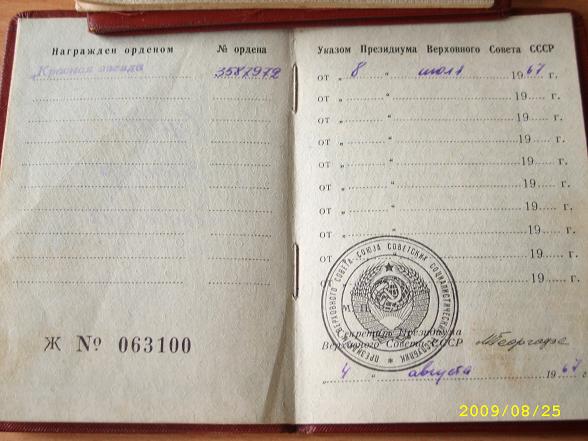 Награжден орденом № ордена
„Красная звезда 3587972
Ж № 063100
Указом Президиума Верховного Совета СССР
от „ 8 “ июля 1967 г.
от „ “ 19 г.
от „ “ 19 г.
от „ “ 19 г.
от „ “ 19 г.
от „ “ 19 г.
от „ “ 19 г.
от „ “ 19 г.
от „ “ 19 г.
от „ “ 19 г.
ПРЕЗИДИУМ ВЕРХОВНОГО СОВЕТА СОЮЗА СОВЕТСКИХ СОЦИАЛИСТИЧЕСКИХ РЕСПУБЛИК
М. П.
Секретарь Президиума
Верховного Совета СССР МГеоргадзе
„ 4 “ августа 1967 г.
2009/08/25